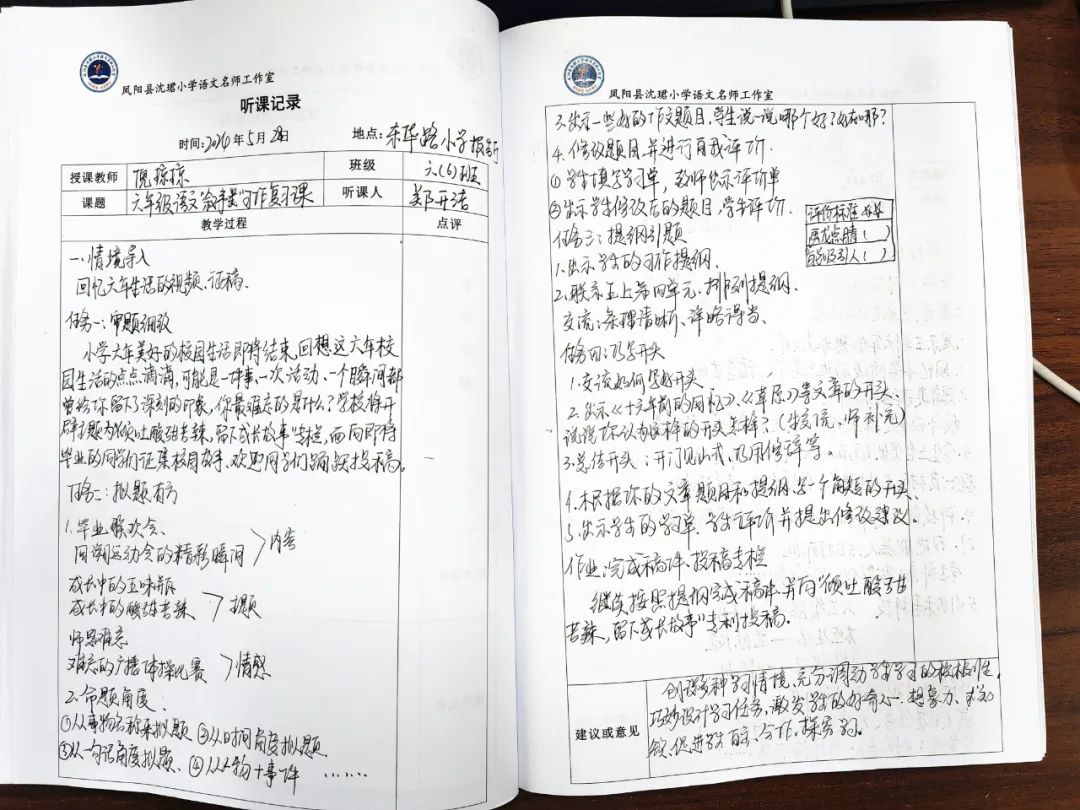 凤阳县沈珺小学语文名师工作室
听课记录
时间:2024年5月28日 地点:东华路小学报告厅
授课教师 倪琼琼 班级 六(6)班
课题 六年级语文"叙事类"习作复习课 听课人 郑开洁
教学过程 点评
一、情境导入
回忆六年生活的视频、征稿。
任务一:审题细致
小学六年美好的校园生活即将结束,回想这六年校
园生活的点点滴滴,可能是一件事、一次活动、一个瞬间都
曾给你留下了深刻的印象,你最难忘的是什么?学校将开
辟主题为"倾吐酸甜苦辣,留下成长故事"专栏,面向即将
毕业的同学们征集校园故事,欢迎同学们踊跃投稿。
任务二:拟题有方
1.毕业联欢会
运动会的精彩瞬间 内容
成长中的五味瓶
成长中的酸甜苦辣 主题
师恩难忘
难忘的广播体操比赛 情感
2.命题角度:
①从事物名称来拟题 ②从时间角度拟题
③从一句话角度拟题、④从人物+事件 ……
凤阳县沈珺小学语文名师工作室
3.出示一些好的作文题目,学生说一说哪个好?好在哪?
4.修改题目,并进行自我评价.
①学生填写学习单,教师出示评价单
②出示学生修改后的题目,学生评价.
评价标准
画龙点睛( )
自然吸引人( )
任务三:提纲引题
1.出示学生的习作提纲.
2.联系五上第四单元,排列提纲.
交流:条理清晰、详略得当.
任务四:巧写开头
1.交流如何写好开头、
2.出示《十六年前的回忆》、《草原》等文章的开头.
说说你认为这样的开头怎样?(生交流,师补充)
3.总结开头:开门见山式,巧用修辞等。
4.根据你的文章题目和提纲,写一个简短的开头、
5.出示学生的学习单、学生评价并提出修改建议.
作业:完成稿件、投稿专栏
继续按照提纲完成稿件,并向"倾吐酸甜
苦辣,留下成长故事"专刊投稿.
建议或意见
创设多种学习情境,充分调动学生学习的积极性,
巧妙设计学习任务,激发学生的好奇心、想象力、求知
欲,促进学生自主、合作、探究学习.